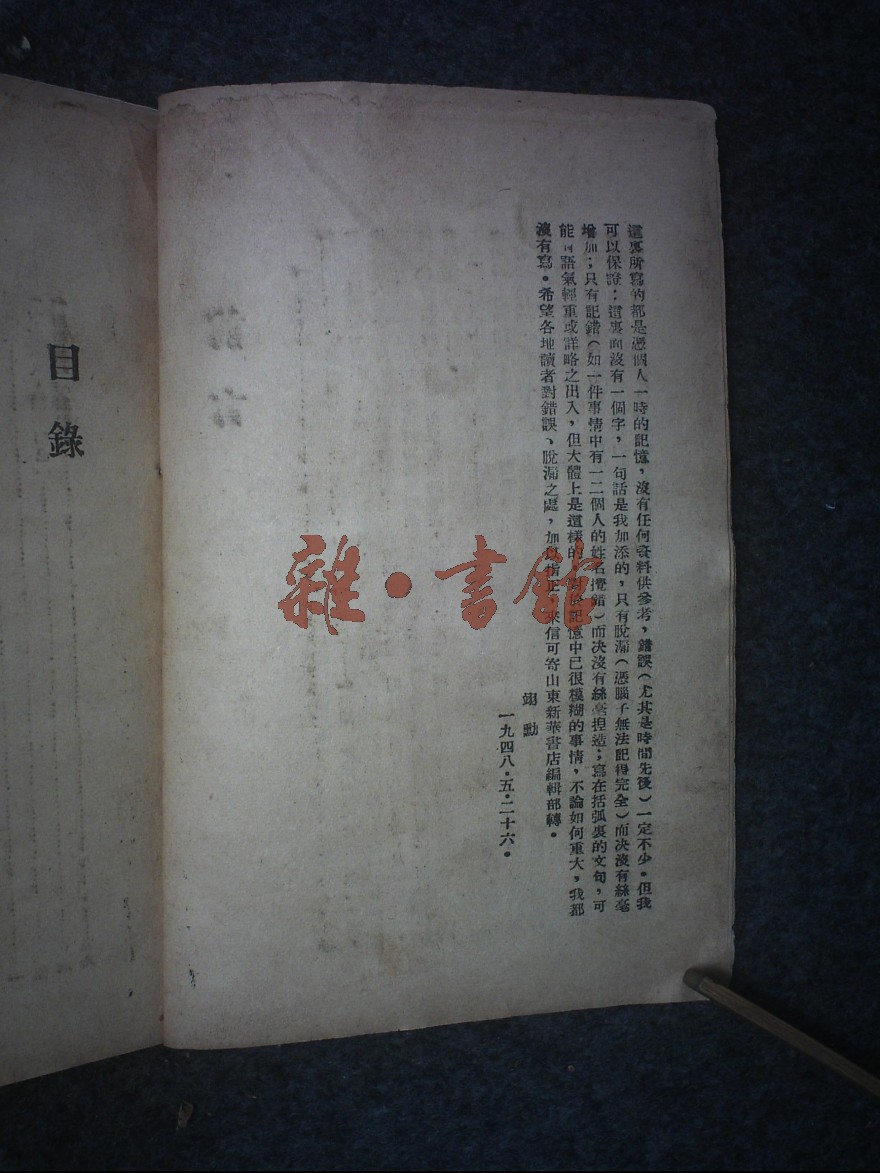 這裏所寫的都是憑個人一時的記憶，沒有任何資料供參考，錯誤（尤其是時間先後）一定不少。但我
可以保證：這裏面沒有一個字，一句話是我加添的，只有脫漏（憑腦子無法記得完全）而決沒有絲毫
增加；只有記錯（如一件事情中有一二個人的姓名攪錯）而決沒有絲毫捏造；寫在括弧裏的文句，可
能有語氣輕重或詳略之出入，但大體上是這樣的。對於記憶中已很模糊的事情，不論如何重大，我都
沒有寫。希望各地讀者對錯誤、脫漏之處，加以指正，來信可寄山東新華書店編輯部轉。
翊勳
一九四八·五·二十六。
目錄
雜·書館